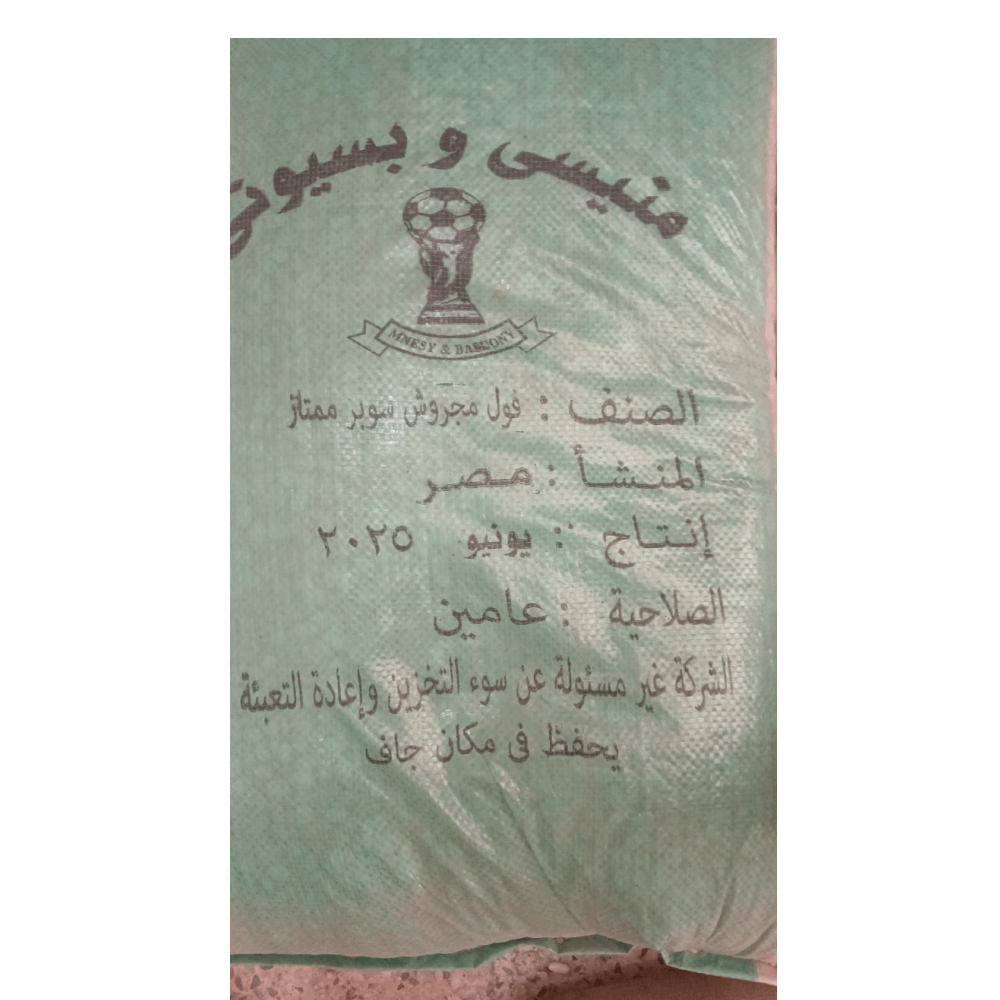 منيسى و بسيونى
MNESY & BASUONY
الصنف : فول مجروش سوبر ممتاز
المنشأ : مصر
إنتاج : يونيو ٢٠٢٥
الصلاحية : عامين
الشركة غير مسئولة عن سوء التخزين وإعادة التعبئة
يحفظ فى مكان جاف